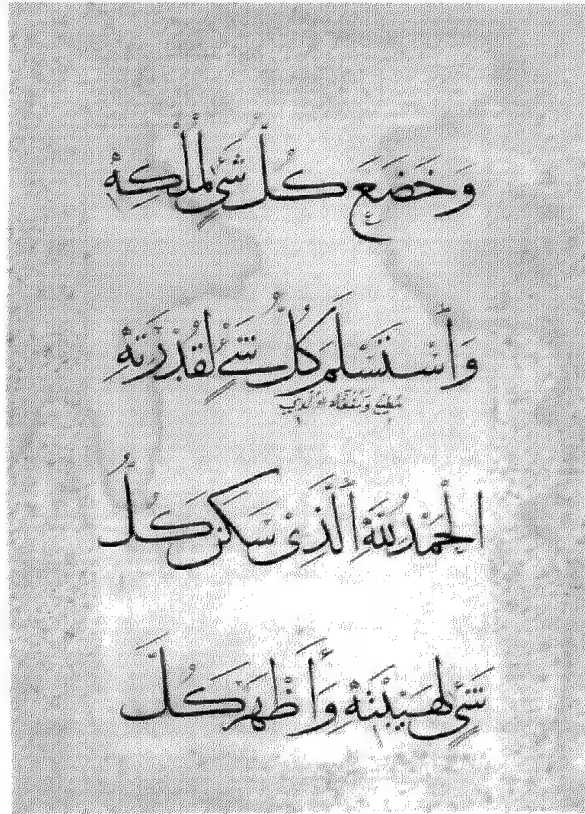 وَخَضَعَ كُلُّ شَيْءٍ لِمُلْكِهِ
وَاَسْتَسْلَمَ كُلُّ شَيْءٍ لِقُدْرَتِهِ
اَلْحَمْدُ لِلَّهِ اَلَّذِي سَكَنَ كُلُّ
شَيْءٍ لِهَيْبَتِهِ وَأَظْهَرَ كُلَّ